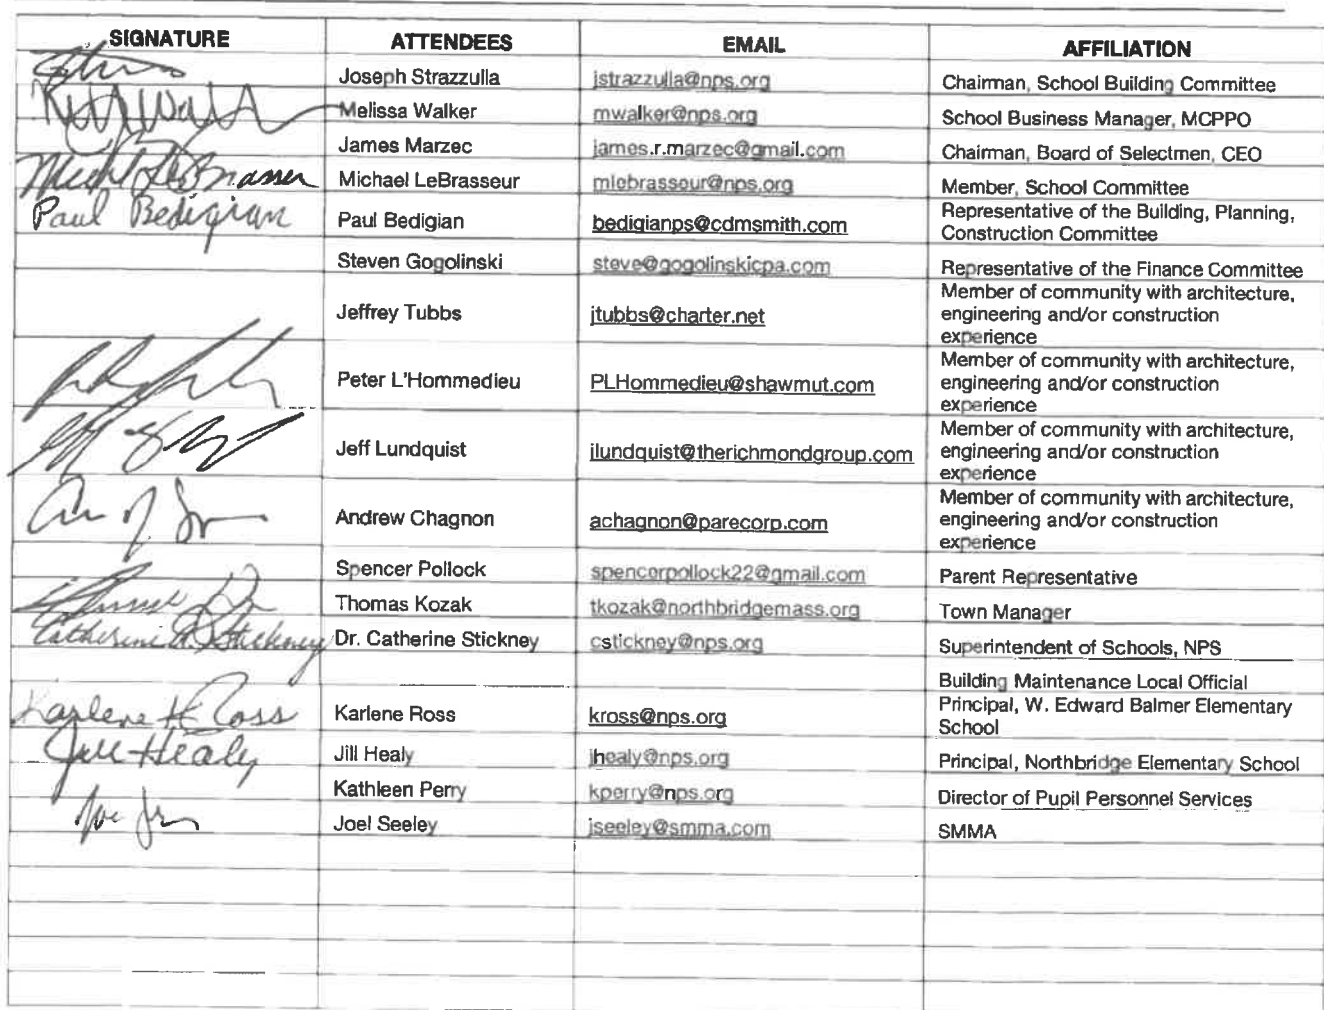 SIGNATURE ATTENDEES EMAIL AFFILIATION
Joseph Strazzulla jstrazzulla@nps.org Chairman, School Building Committee
Melissa Walker mwalker@nps.org School Business Manager, MCPPO
James Marzec james.r.marzec@gmail.com Chairman, Board of Selectmen, CEO
Michael LeBrasseur mlebrasseur@nps.org Member, School Committee
Paul Bedigian Paul Bedigian bedigianps@cdmsmith.com Representative of the Building, Planning,
Construction Committee
Steven Gogolinski steve@gogolinskicpa.com Representative of the Finance Committee
Jeffrey Tubbs jtubbs@charter.net Member of community with architecture,
engineering and/or construction
experience
Peter L'Hommedieu PLHommedieu@shawmut.com Member of community with architecture,
engineering and/or construction
experience
Jeff Lundquist jlundquist@therichmondgroup.com Member of community with architecture,
engineering and/or construction
experience
Andrew Chagnon achagnon@parecorp.com Member of community with architecture,
engineering and/or construction
experience
Spencer Pollock spencerpollock22@gmail.com Parent Representative
Thomas Kozak tkozak@northbridgemass.org Town Manager
Catherine A. Stickney Dr. Catherine Stickney cstickney@nps.org Superintendent of Schools, NPS
Building Maintenance Local Official
Karlene H Ross Karlene Ross kross@nps.org Principal, W. Edward Balmer Elementary
School
Jill Healy Jill Healy jhealy@nps.org Principal, Northbridge Elementary School
Kathleen Perry kperry@nps.org Director of Pupil Personnel Services
Joel Seeley jseeley@smma.com SMMA